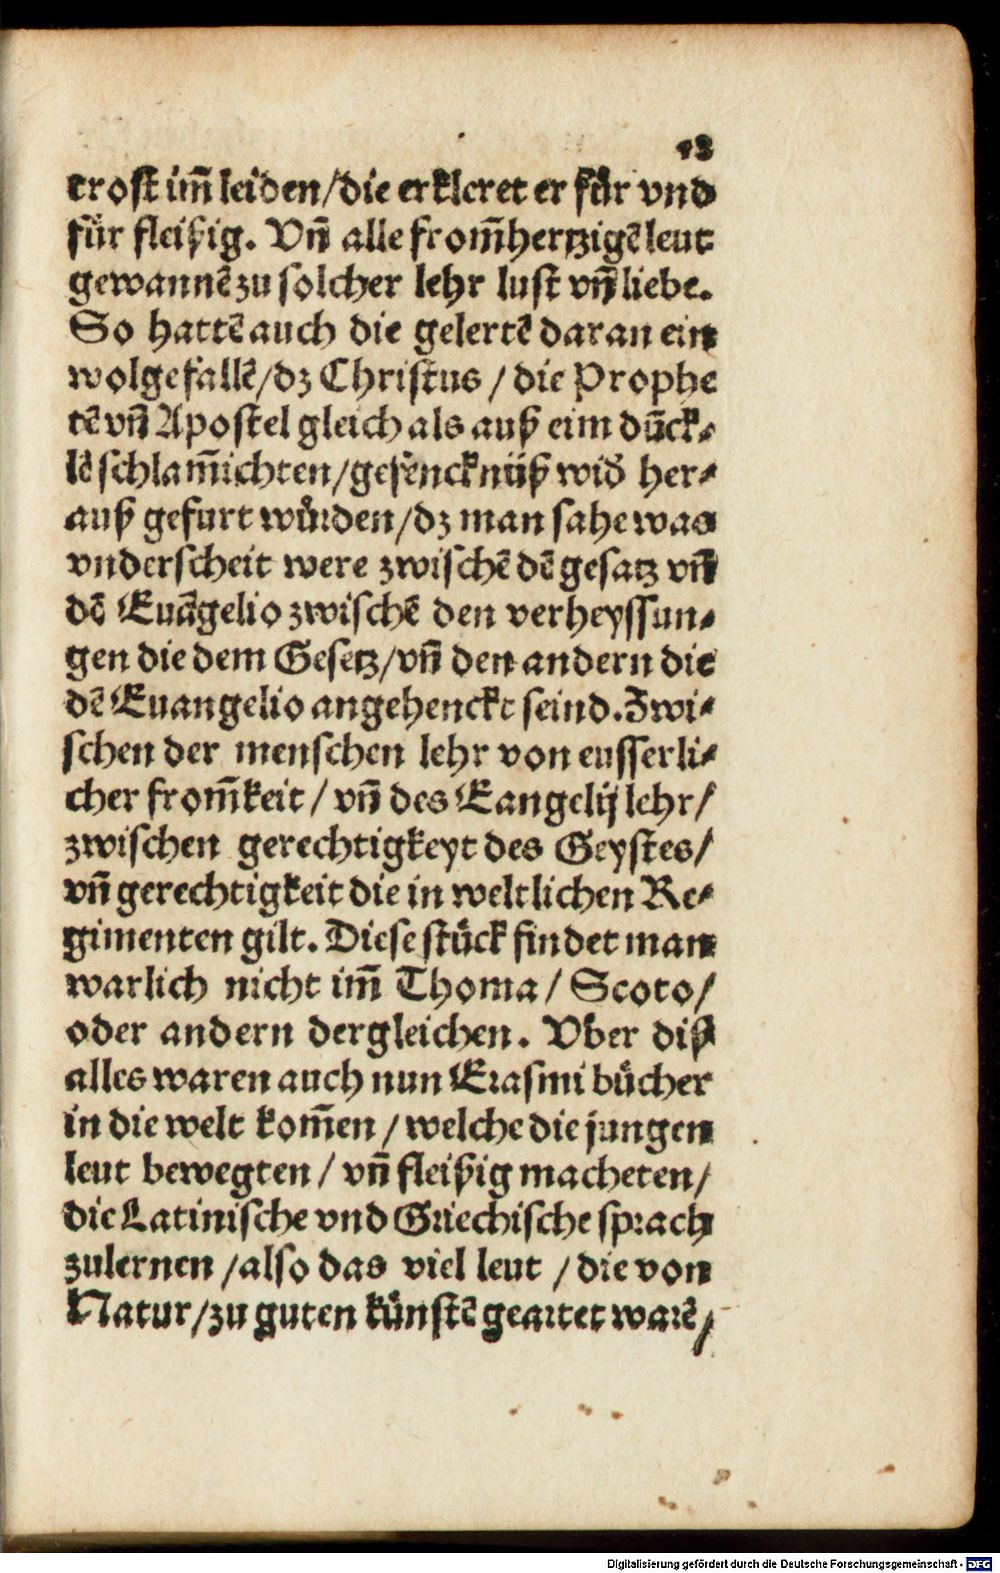 13
trost im̄ leiden/die erkleret er fuͤr vnd
fuͤr fleißig. Vn̄ alle from̄hertzigē leut
gewannē zu solcher lehr lust vn̄ liebe.
So hattē auch die gelertē daran ein
wolgefallē/dz Christus / die Prophe
tē vn̄ Apostel gleich als auß eim dūck⸗
lē schlam̄ichten/gefenckniß wid̄ her⸗
auß gefurt wuͤrden/dz man sahe was
vnderscheit were zwischē dē gesatz vn̄
dē Euāgelio zwischē den verheyssun⸗
gen die dem Gesetz/vn̄ den andern die
dē Euangelio angehenckt seind. Zwi⸗
schen der menschen lehr von eusserli⸗
cher from̄keit / vn̄ des Eangelij lehr/
zwischen gerechtigkeyt des Geystes/
vn̄ gerechtigkeit die in weltlichen Re⸗
gimenten gilt. Diese stuͤck findet man
warlich nicht im̄ Thoma / Scoto/
oder andern dergleichen. Vber diß
alles waren auch nun Erasmi buͤcher
in die welt kom̄en / welche die jungen
leut bewegten / vn̄ fleißig macheten/
die Latinische vnd Griechische sprach
zulernen /also das viel leut / die von
Natur/zu guten kuͤnstē geartet warē/
Digitalisierung gefördert durch die Deutsche Forschungsgemeinschaft - DFG